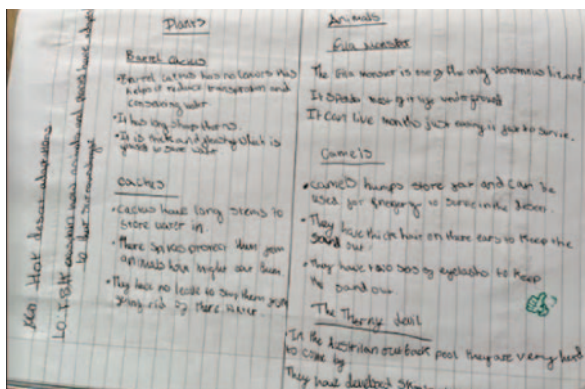 Hot desert adaptations
LO: I can explain how animals and plants have adapted
to their surroundings
Plants
Barrel cactus
• Barrel cactus has no leaves this
helps it reduce transpiration and
conserving water
• It has long sharp thorns.
• It is thick and fleshy which is
good to save water
cactus
• cactus have long stems to
store water in.
• There spikes protect them from
animals how might eat them
• They have no leafs to stop them from
going rid of there water
Animals
Gila monster
The Gila monster is one of the only venomous lizard
It spends most of it life underground
It can live months just eating is fat to survive.
Camels
• camels humps store fat and can be
used for energy to survive in the desert.
• They have thick hair on there ears to keep the
sand out
• They have two sets of eyelashs to keep
the sand out
The Thorny devil
• In the outback they are very hard
to come by
They have developed